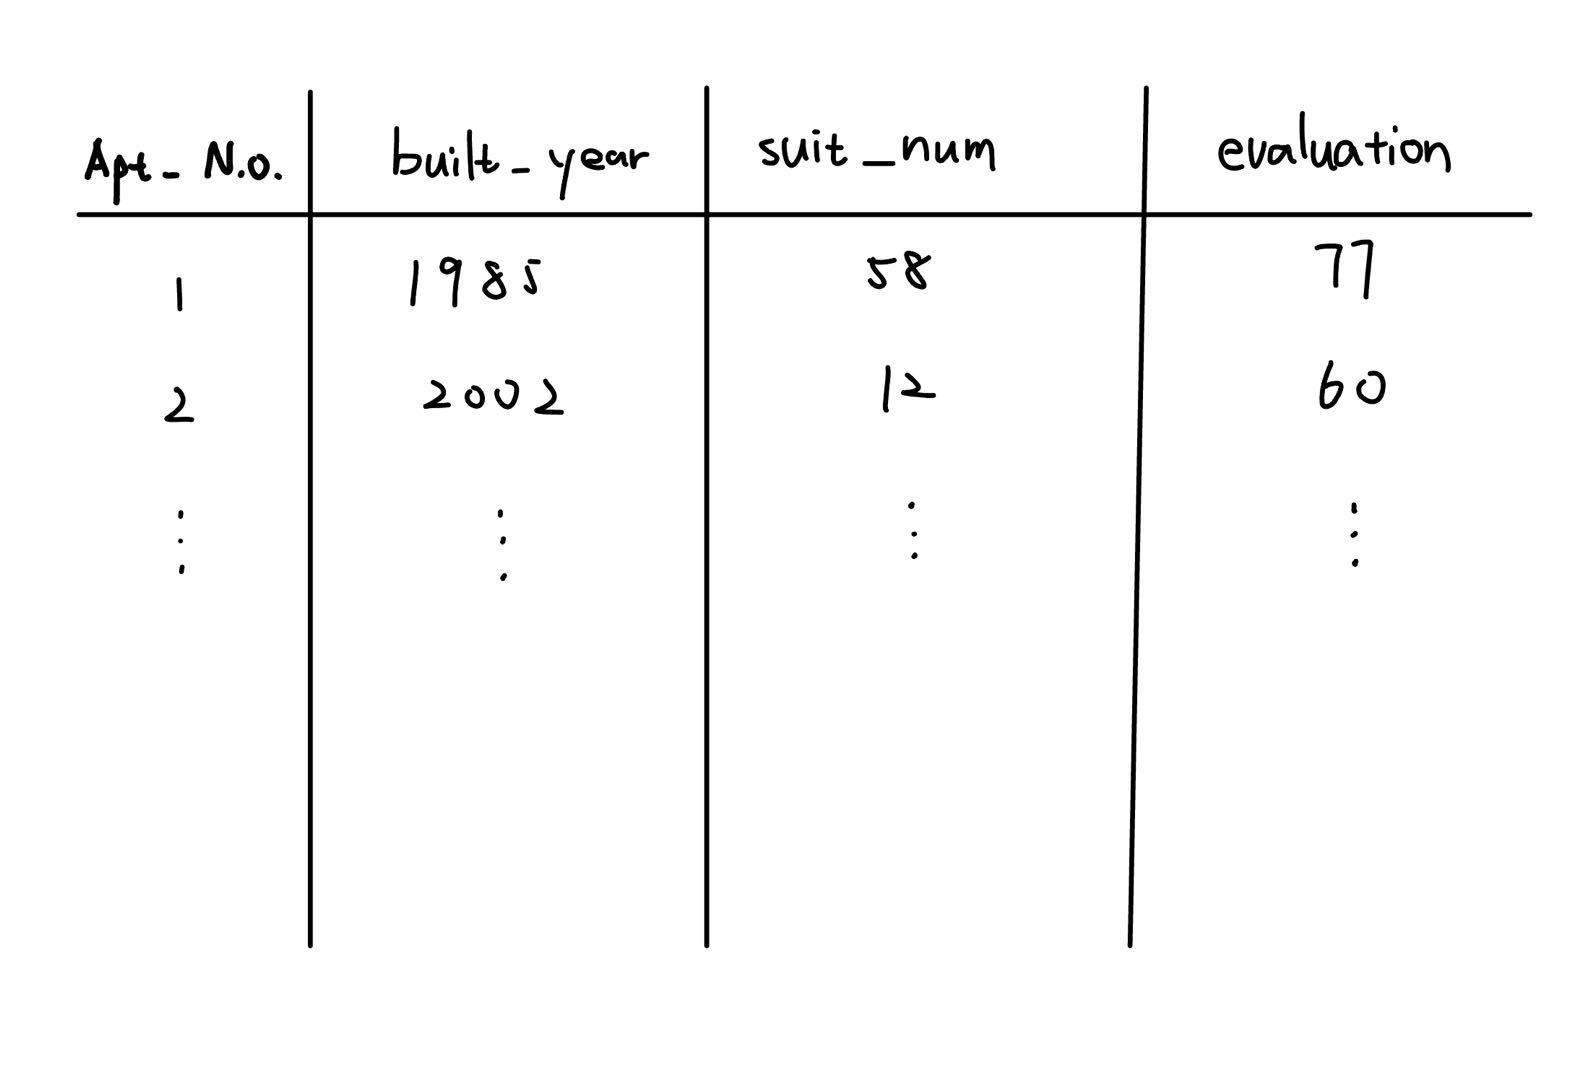 Apt_ N.o. built_year suit_num evaluation
1 1985 58 77
2 2002 12 60
⋮ ⋮ ⋮ ⋮